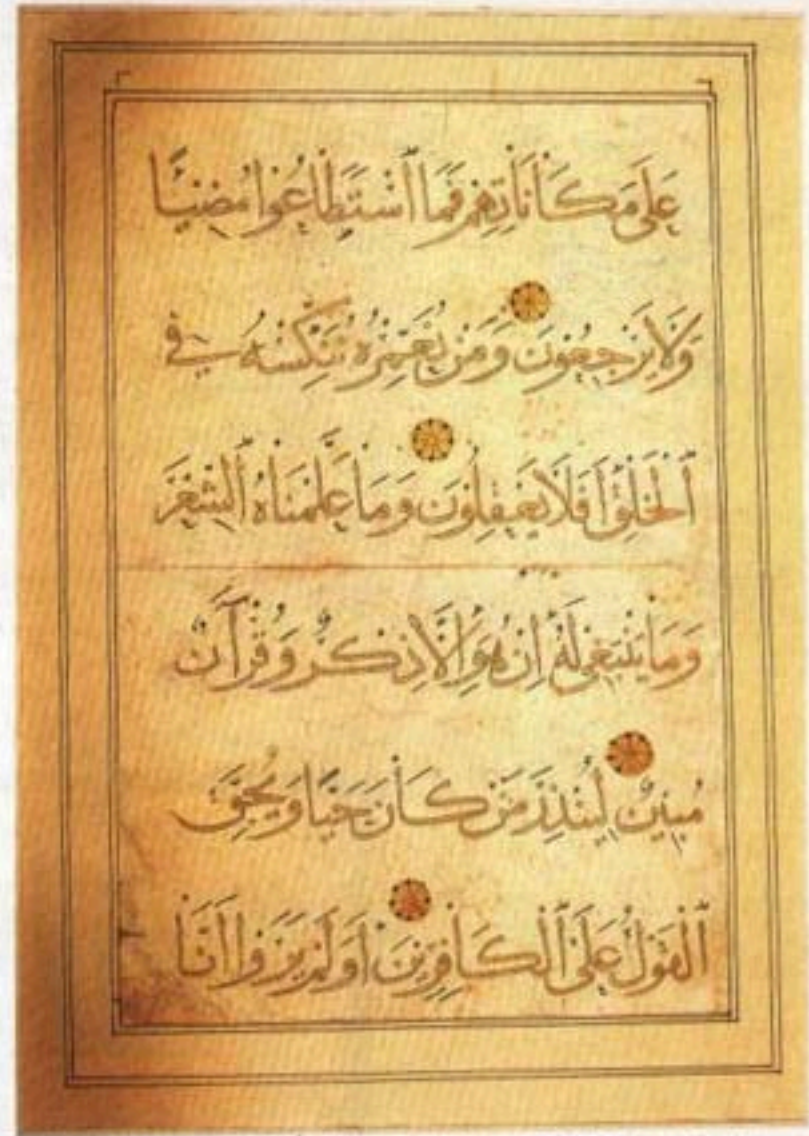 عَلَى مَكَانَاتِهِمْ فَمَا اسْتَطَاعُوا مُضِيًّا
وَلَا يَرْجِعُونَ وَمَنْ نُعَمِّرْهُ نُنَكِّسْهُ فِي
الْخَلْقِ أَفَلَا يَعْقِلُونَ وَمَا عَلَّمْنَاهُ الشِّعْرَ
وَمَا يَنْبَغِي لَهُ إِنْ هُوَ إِلَّا ذِكْرٌ وَقُرْآنٌ
مُبِينٌ لِيُنْذِرَ مَنْ كَانَ حَيًّا وَيَحِقَّ
الْقَوْلُ عَلَى الْكَافِرِينَ أَوَلَمْ يَرَوْا أَنَّا